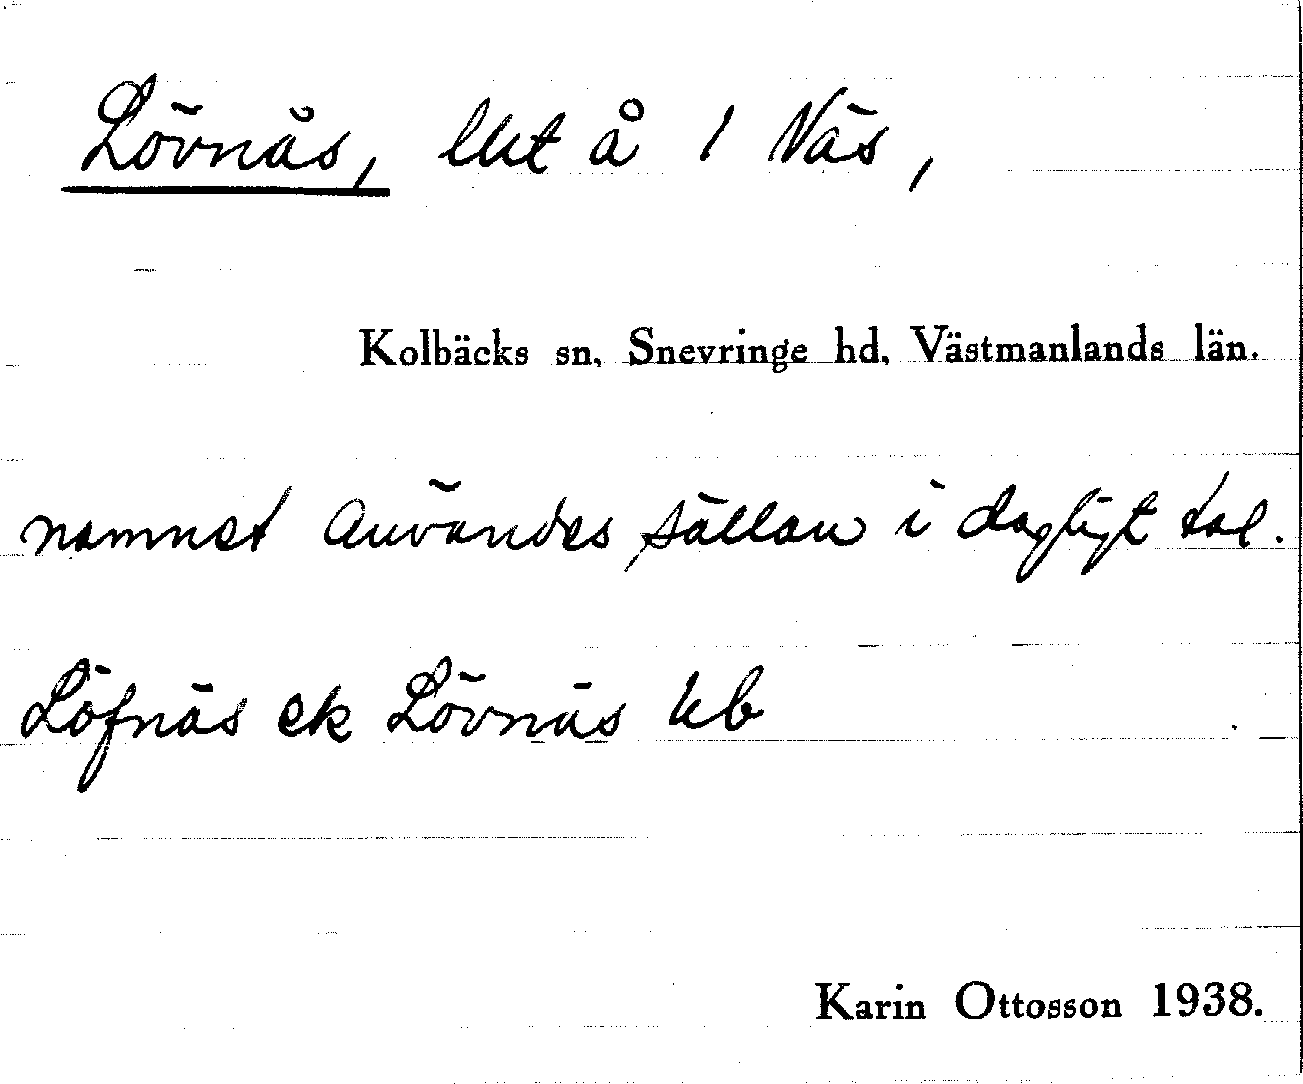 Lövnäs, lht å 1 Näs,
Kolbäcks sn, Snevringe hd, Västmanlands län.
namnet användes sällan i dagligt tal.
Löfnäs ek Lövnäs kb
Karin Ottosson 1938.